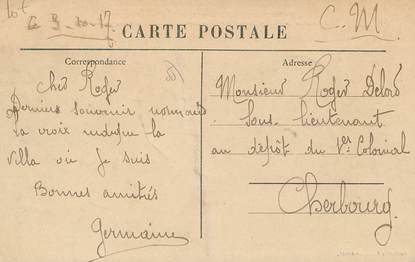 le 9-10-17
C. M
CARTE POSTALE
Correspondance
Adresse
Cher Roger
Dernier souvenir normand
La croix indique la
villa où je suis
Bonnes amitiés
Germaine
Monsieur Roger
Sous lieutenant
au dépôt du 1er Colonial
Cherbourg.